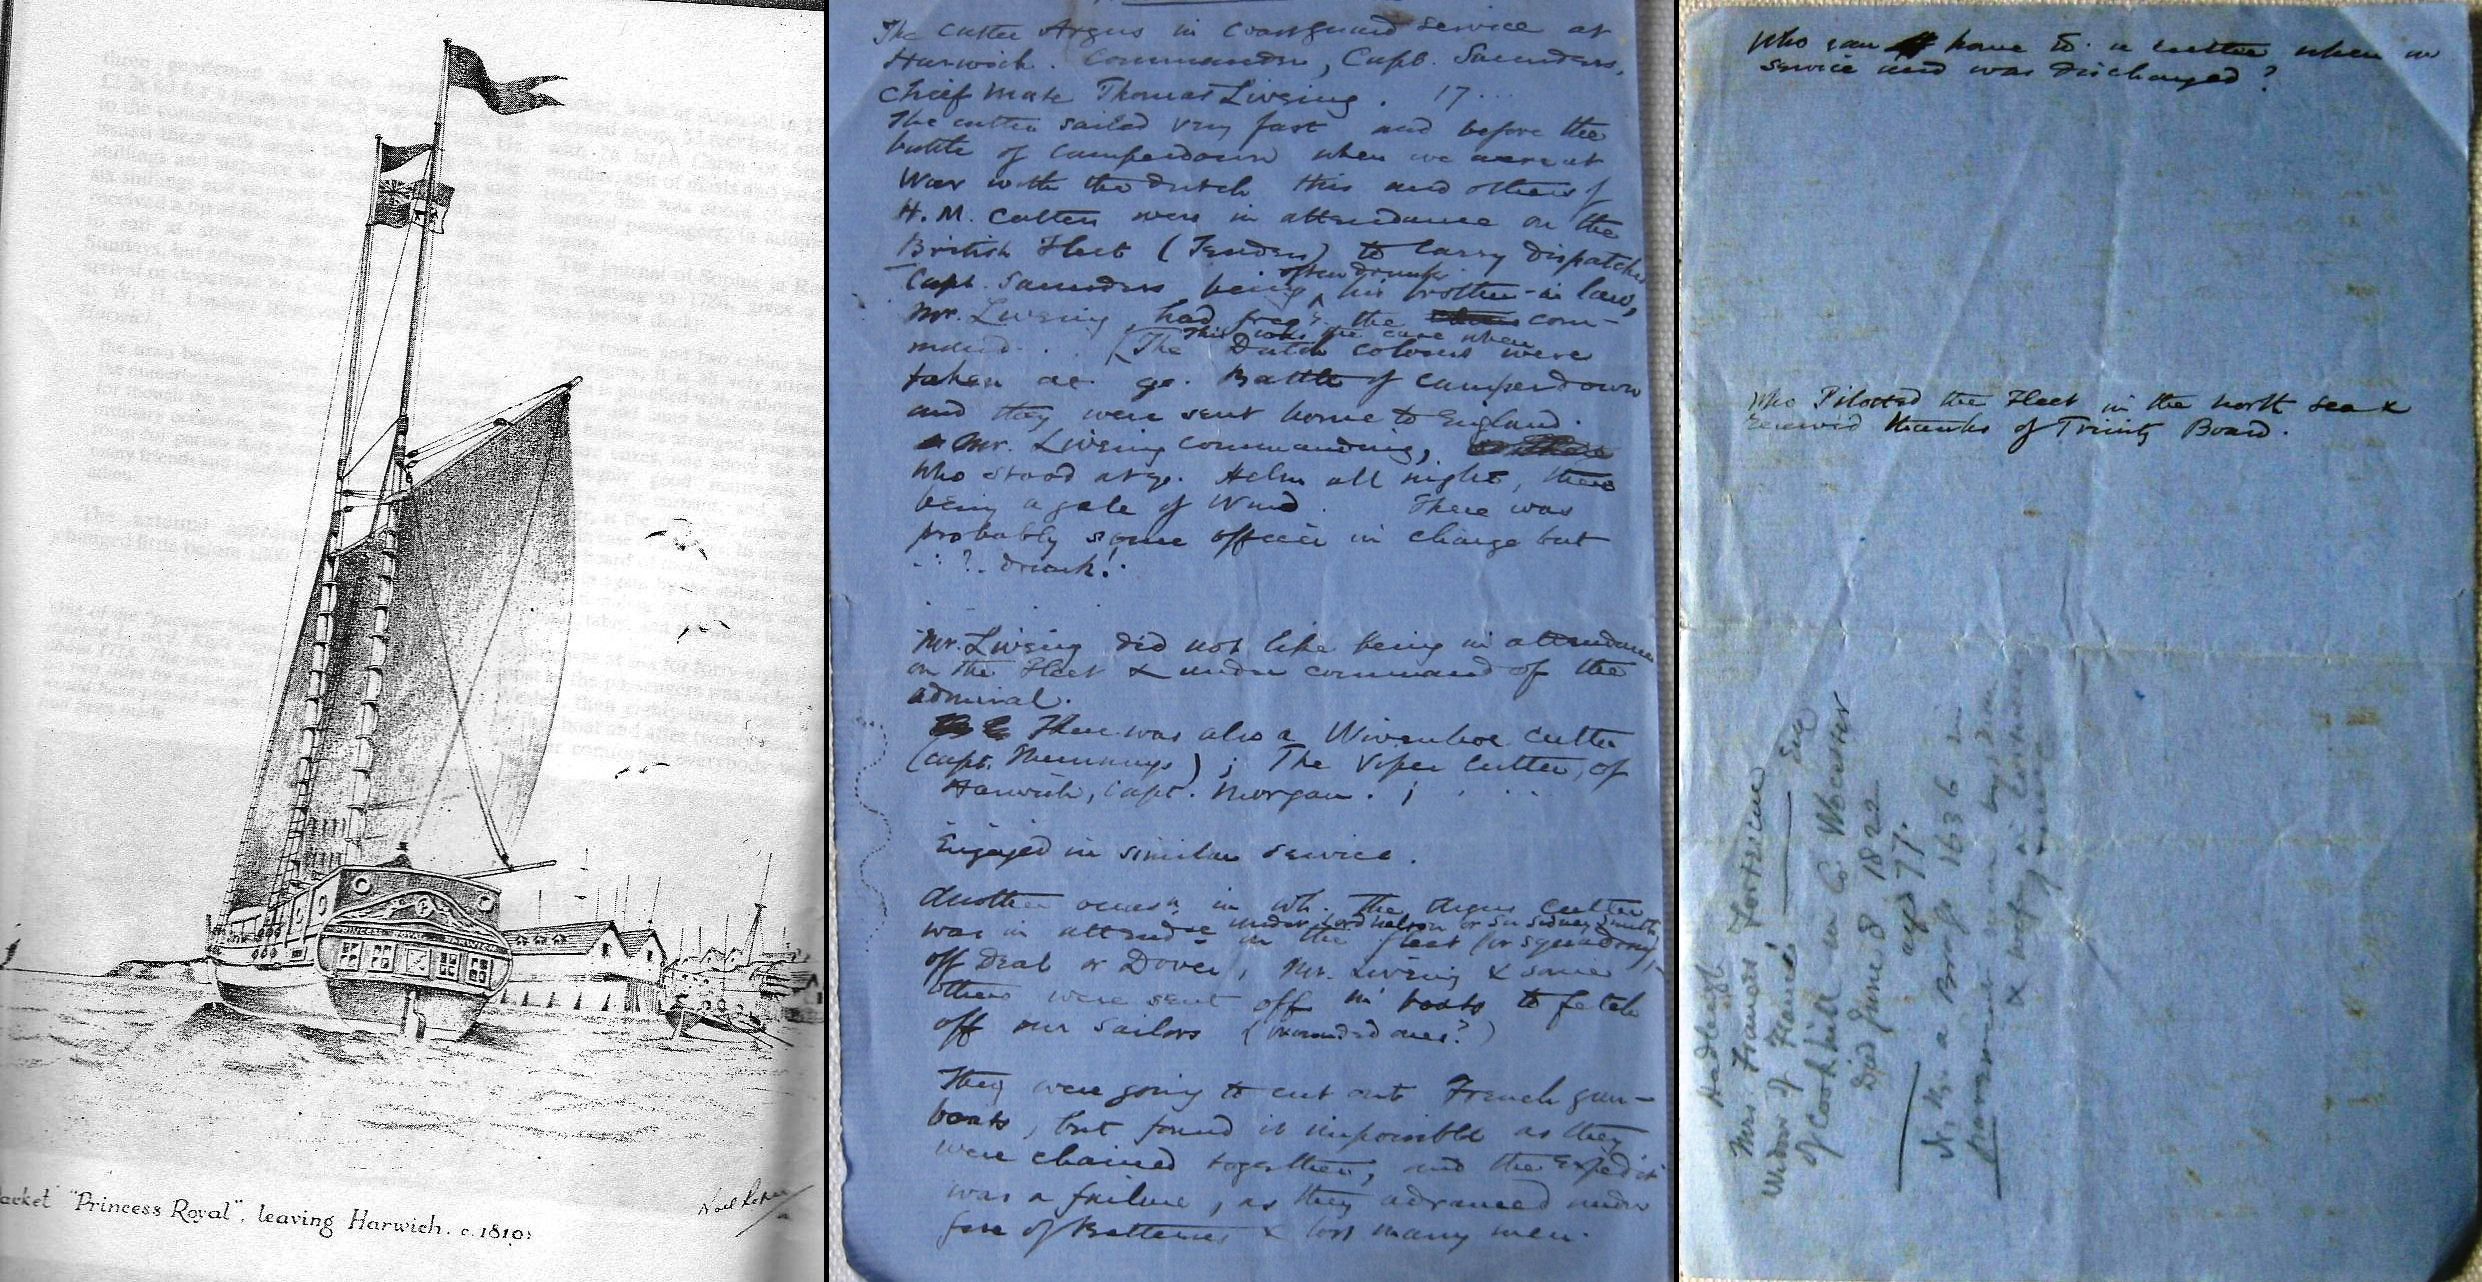 PRINCESS ROYAL HARWICH
"Princess Royal", leaving Harwich. c. 1819
The cutter Argus in Coastguard service at
Harwich. Commander, Capt. Saunders,
Chief Mate Thomas Liveing. 17...
The cutter sailed very fast and before the
battle of Camperdown when we were at
War with the Dutch this and others of
H. M. cutters were in attendance on the
British Fleet (Tenders) to carry dispatches
often drunk
Capt. Saunders being ^ his brother-in law,
Mr. Liveing, had freqy. the com-
This was the case when
mand... (The Dutch colours were
taken at ye. Battle of Camperdown
and they were sent home to England.
Mr. Liveing commanding,
who stood at ye. Helm all night, there
being a gale of Wind. There was
probably some officer in charge but
..?. drunk!.
Mr. Liveing did not like being in attendance
on the Fleet & under command of the
admiral.
There was also a Wivenhoe cutter
(Capt. ); The Viper Cutter, of
Harwich, Capt. Morgan. ;
Engaged in similar service.
Another occasn. in wh. the Argus Cutter
under Lord Nelson or Sir Sidney Smith
was in attendce in the fleet (or squadron)
off Deal or Dover, Mr. Liveing & some
others were sent off in boats to fetch
off our sailors (wounded ones?)
They were going to cut out French gun-
boats, but found it impossible as they
were chained together, and the Expedit
was a failure, as they advanced under
fire of Batteries & lost many men.
Who ran home to. a cutter when in
service and was discharged?
Who Piloted the Fleet in the North Sea &
received thanks of Trinity Board.
Hadleigh
Mrs Frances Fortescue
Widow of Francis Esq
of Cookhill in Co Worcester
Died June 8 1822
aged 77.